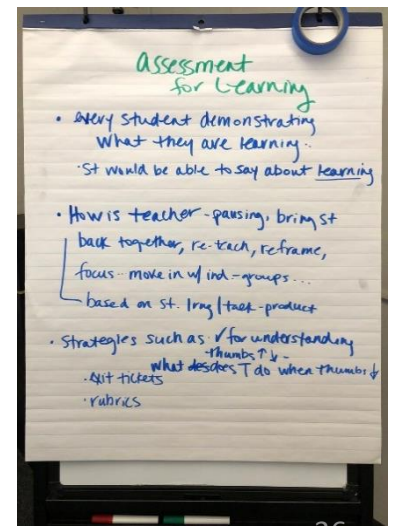 Assessment
for Learning
• every student demonstrating
what they are learning..
• St would be able to say about learning
• How is teacher - pausing, bring st
back together, re-teach, reframe,
focus.. move in w/ ind - groups...
based on st. lrng / task - product
• Strategies such as ✓ for understanding
- thumbs ↑ ↓ -
what does T do when thumbs ↓
• exit tickets
• rubrics